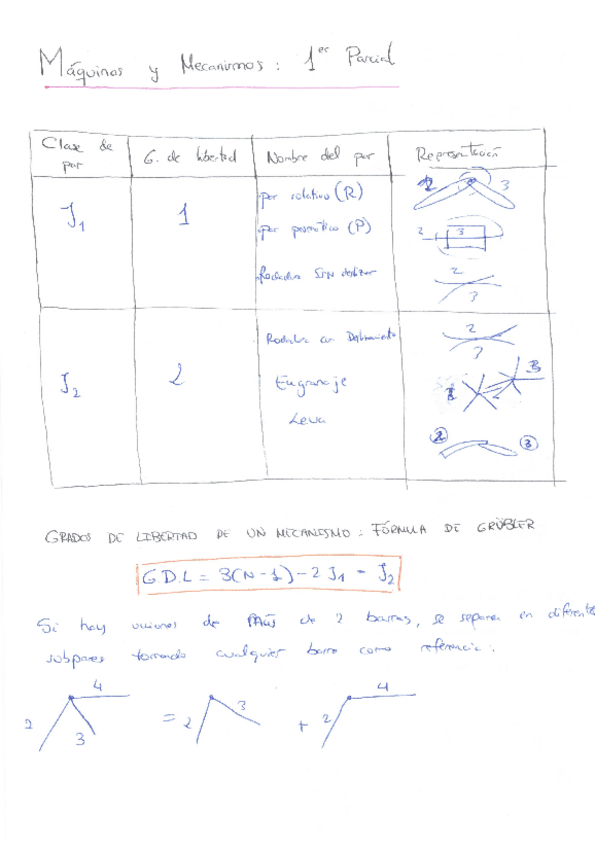 Máquinas y Mecanismos: 1er Parcial
Clase de par
G. de libertad
Nombre del par
Representación
J1
1
par rotativo (R)
par prismático (P)
Rodadura SIN deslizar
2 3
2 3
2
3
J2
2
Rodadura con Deslizamiento
Engranaje
Leva
2
3
3
2 3
GRADOS DE LIBERTAD DE UN MECANISMO: FÓRMULA DE GRÜBLER
G.D.L = 3(N-1)-2J1 - J2
Si hay uniones de más de 2 barras, se separan en diferentes
subpares tomando cualquier barra como referencia:
4
2
3
= 2
3
+ 2
4